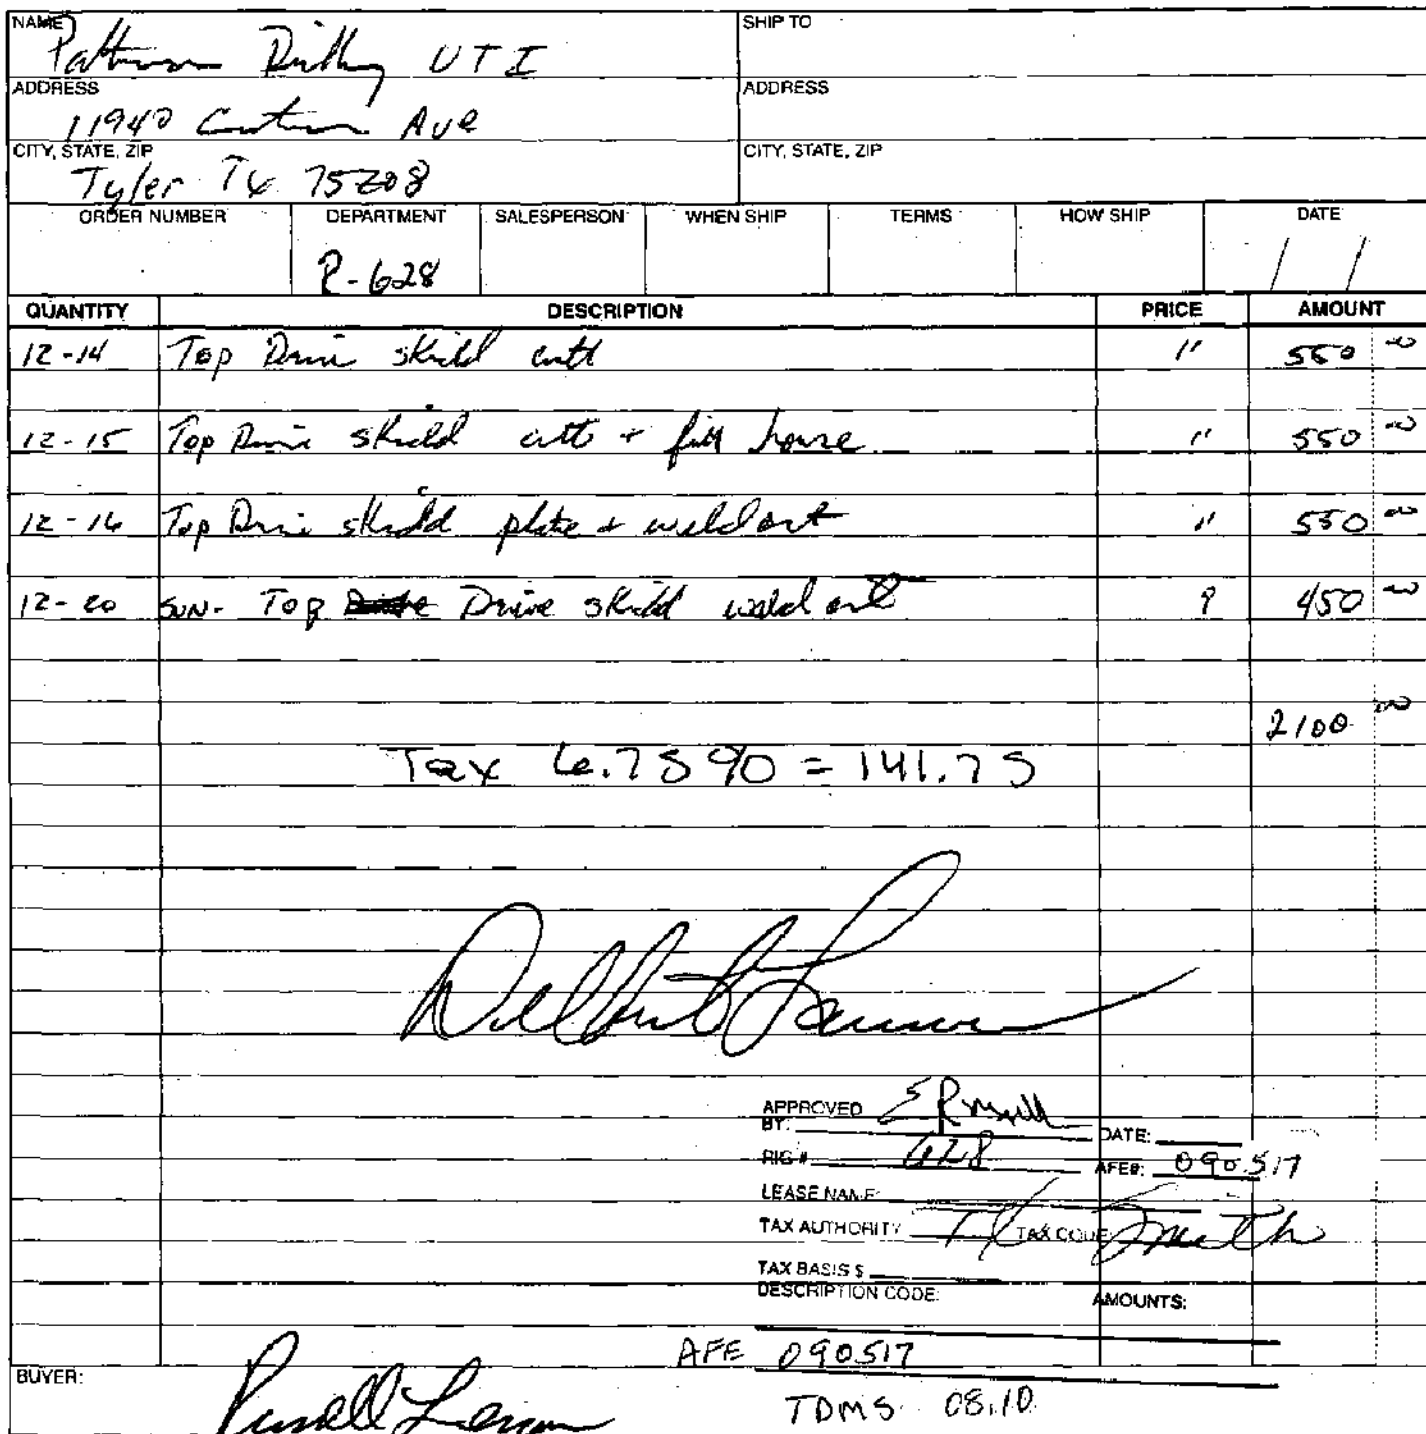 NAME
Patterson Drilling UTI
SHIP TO
ADDRESS
11940 Ave
ADDRESS
CITY, STATE, ZIP
Tyler Tx 75208
CITY, STATE, ZIP
ORDER NUMBER DEPARTMENT SALESPERSON WHEN SHIP TERMS HOW SHIP DATE
R-628 / /
QUANTITY DESCRIPTION PRICE AMOUNT
12-14 Top Drive skidd cutt " 550 00
12-15 Top Drive skidd cutt + fitt house " 550 00
12-16 Top Drive skidd plate + weld out " 550 00
12-20 SUN- Top Drive skidd weld out 450 00
2100 00
Tax 6.75% = 141.75
APPROVED
BY:
DATE:
RIG # 628
AFE#: 090517
LEASE NAME:
TAX AUTHORITY TX TAX CODE Smith
TAX BASIS $
DESCRIPTION CODE: AMOUNTS:
AFE 090517
BUYER:
TDMS 08.10